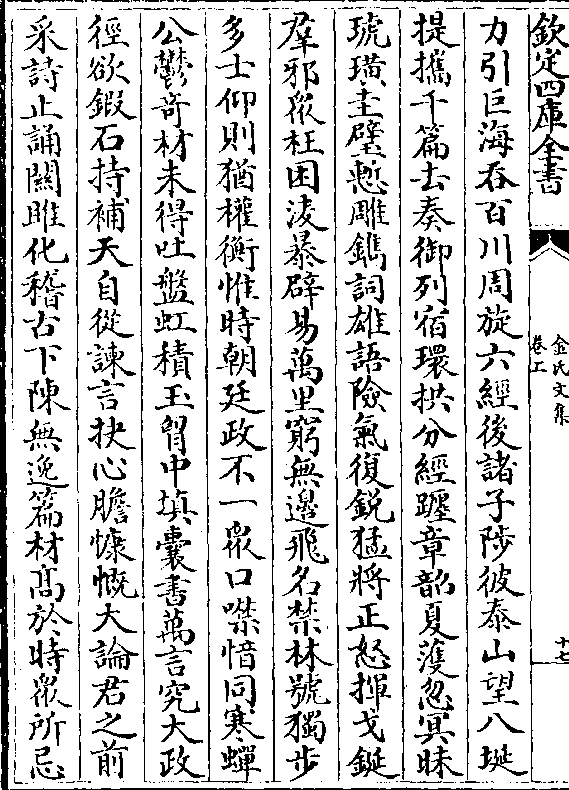 欽定四庫全書
金氏文集
卷上
十七
力引巨海吞百川周旋六經後諸子陟彼泰山望八埏
提攜千篇去奏御列宿環拱分經躔章韶夏濩忽冥昧
琥璜圭璧慙雕鐫詞雄語險氣復鋭猛將正怒揮戈鋋
羣邪衆枉困凌暴辟易萬里窮無邊飛名禁林號獨步
多士仰則猶權衡惟時朝廷政不一衆口噤㦗同寒蟬
公鬱奇材未得吐盤虹積玉胷中填囊書萬言究大政
徑欲鍜石持補天自從諫言抉心膽慷慨大論君之前
采詩止誦關雎化稽古下陳無逸篇材髙於時衆所忌